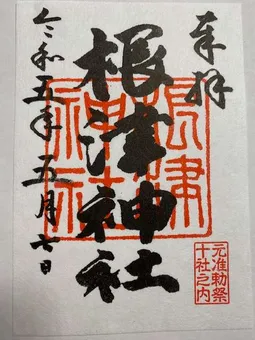 奉拝
根津神社
令和五年五月七日
根津神社
元准勅祭
十社之内